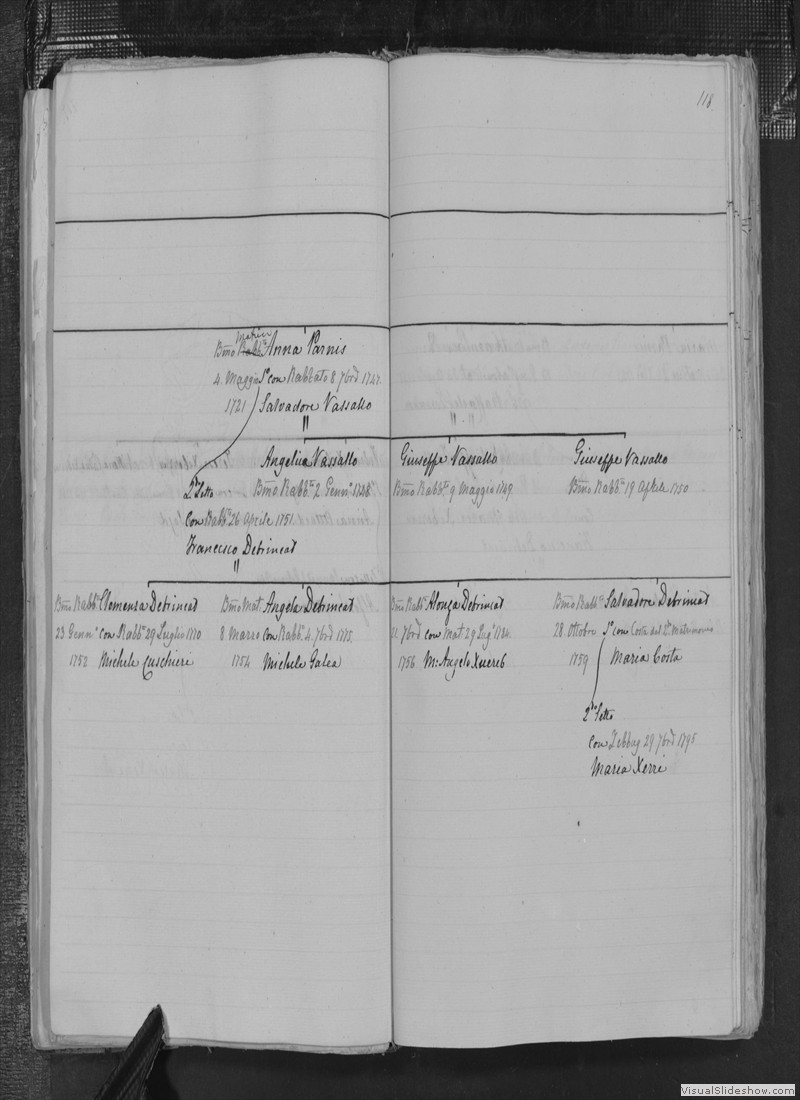 118
Matrice
Bmo Rabbto Anna Parnis
4. Maggio Sa con Rabbato 8 7bre 1747.
1721 Salvadore Vassallo
"
Angelica Vassallo
Bmo Rabbto 2. Gennro 1748
Giuseppe Vassallo
Bmo Rabbto 9 Maggio 1749
Giuseppe Vassallo
Bmo Rabbto 19 Aprile 1750
2o Letto
Con Rabbto 26 Aprile 1751.
Francesco Debrincat
"
Bmo Rabbto Clemenza Debrincat
23 Gennro con Rabbto 29 Luglio 1770
1752 Michele Cuschieri
Bmo Mat. Angela Debrincat
8 Marzo con Rabbto 4. 7bre 1775.
1754 Michele Galea
Bmo Rabto Alonza Debrincat
21 7bre con Mat 29 1784.
1756 Mo Angelo Xuereb
Bmo Rabbto Salvadore Debrincat
28 Ottobre Sa con Costa del 2o Matrimonio
1759 Maria Costa
2do Letto
con Zebbug 29 7bre 1795
Maria Xerri
VisualSlideshow.com